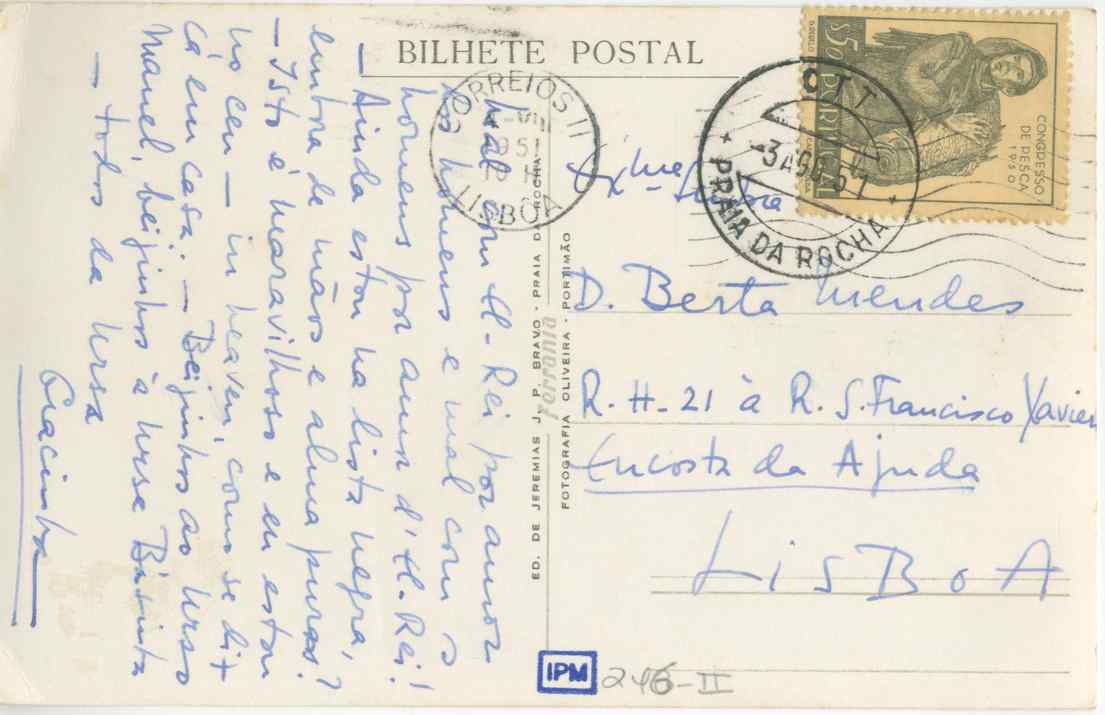 BILHETE POSTAL
Mal com El-Rei por amor
dos homens e mal com os
homens por amor d'El-Rei!
— Ainda estou na lista negra,
embora de mãos e alma puras?
— Isto é maravilhoso e eu estou
no ceu — in heaven, como se diz
cá em casa. — Beijinhos ao Urso
Manuel, beijinhos à Ursa
— todos da Ursa
Gracinha
ED. DE JEREMIAS J. P. BRAVO - PRAIA DA ROCHA
Ferrania
FOTOGRAFIA OLIVEIRA - PORTIMÃO
CORREIOS II
951
LISBOA
CTT
-3 AGO 51
PRAIA DA ROCHA
$50
PORTUGAL
CONGRESSO
DE PESCA
1950
Exma
Senhora
D. Berta Mendes
R. H-21 à R. S. Francisco Xavier
Encosta da Ajuda
LISBOA
IPM
246-II